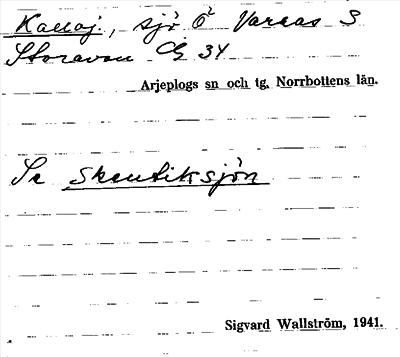 Kallaj, sjö Ö Varras S
Storavan Cg 34
Arjeplogs sn och tg, Norrbottens län.
Se Skeutiksjön
Sigvard Wallström, 1941.